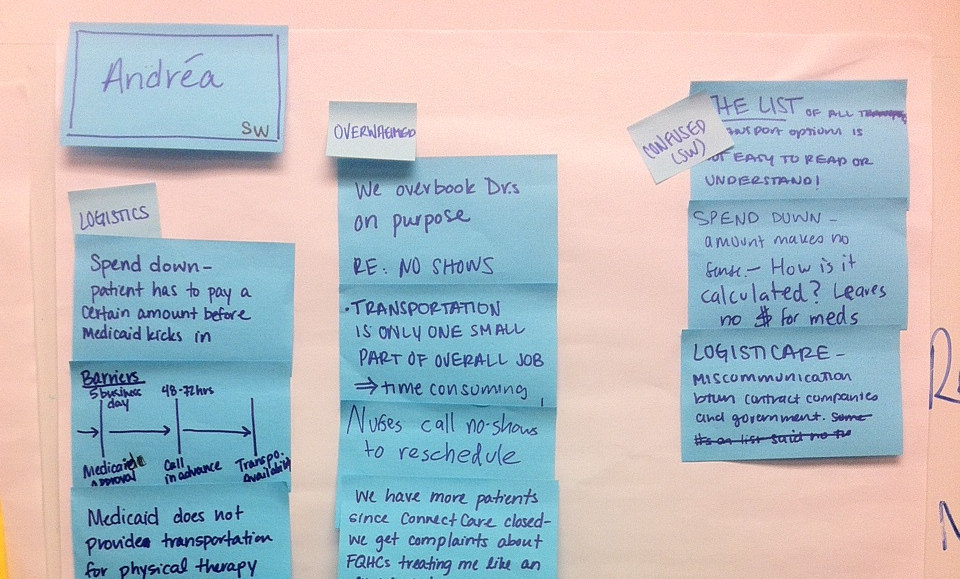 Andréa
SW
LOGISTICS
Spend down-
patient has to pay a
certain amount before
Medicaid kicks in
Barriers
5 business
day
48-72hrs
Medicaid
Approval
Call
in advance
Transpo.
Availability
Medicaid does not
provide transportation
for physical therapy
OVERWHELMED
We overbook Drs
on purpose
RE: NO SHOWS
• TRANSPORTATION
IS ONLY ONE SMALL
PART OF OVERALL JOB
⇒ time consuming
Nurses call no-shows
to reschedule
We have more patients
since Connect Care closed-
we get complaints about
FQHCs treating me like an
CONFUSED
(SW)
THE LIST OF ALL
OPTIONS IS
EASY TO READ OR
UNDERSTAND!
SPEND DOWN -
amount makes no
sense. - How is it
calculated? Leaves
no $ for meds
LOGISTICARE -
MISCOMMUNICATION
btwn contract companies
and government. Some
its on list said no